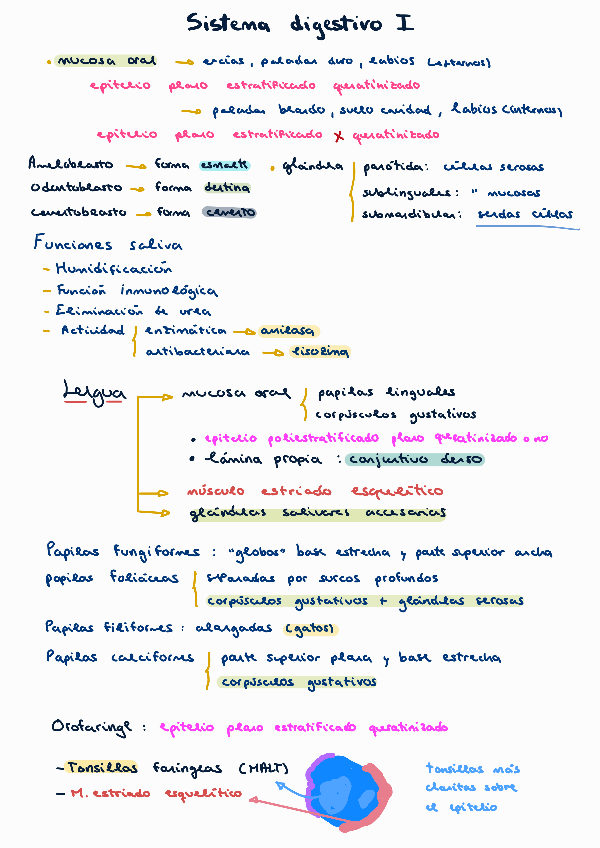 Sistema digestivo I
• mucosa oral → encías, paladar duro, labios (externos)
epitelio plano estratificado queratinizado
→ paladar blando, suelo cavidad, labios (internos)
epitelio plano estratificado x queratinizado
Ameloblasto → forma esmalte
Odontoblasto → forma dentina
cementoblasto → forma cemento
• glándula
parótida: células serosas
sublinguales: " mucosas
submandibular: serdas células
Funciones saliva
- Humidificación
- Función inmunológica
- Eliminación de urea
- Actividad enzimática → amilasa
antibacteriana → lisozima
Lengua
→ mucosa oral papilas linguales
corpúsculos gustativos
• epitelio poliestratificado plano queratinizado o no
• lámina propia : conjuntivo denso
→ músculo estriado esquelético
→ glándulas salivares accesorias
Papilas fungiformes : "globos" base estrecha y parte superior ancha
papilas foliáceas separadas por surcos profundos
corpúsculos gustativos + glándulas serosas
Papilas filiformes : alargadas (gatos)
Papilas caliciformes parte superior plana y base estrecha
corpúsculos gustativos
Orofaringe : epitelio plano estratificado queratinizado
- Tonsillas faríngeas (MALT)
- M. estriado esquelético
tonsillas más
claritas sobre
el epitelio